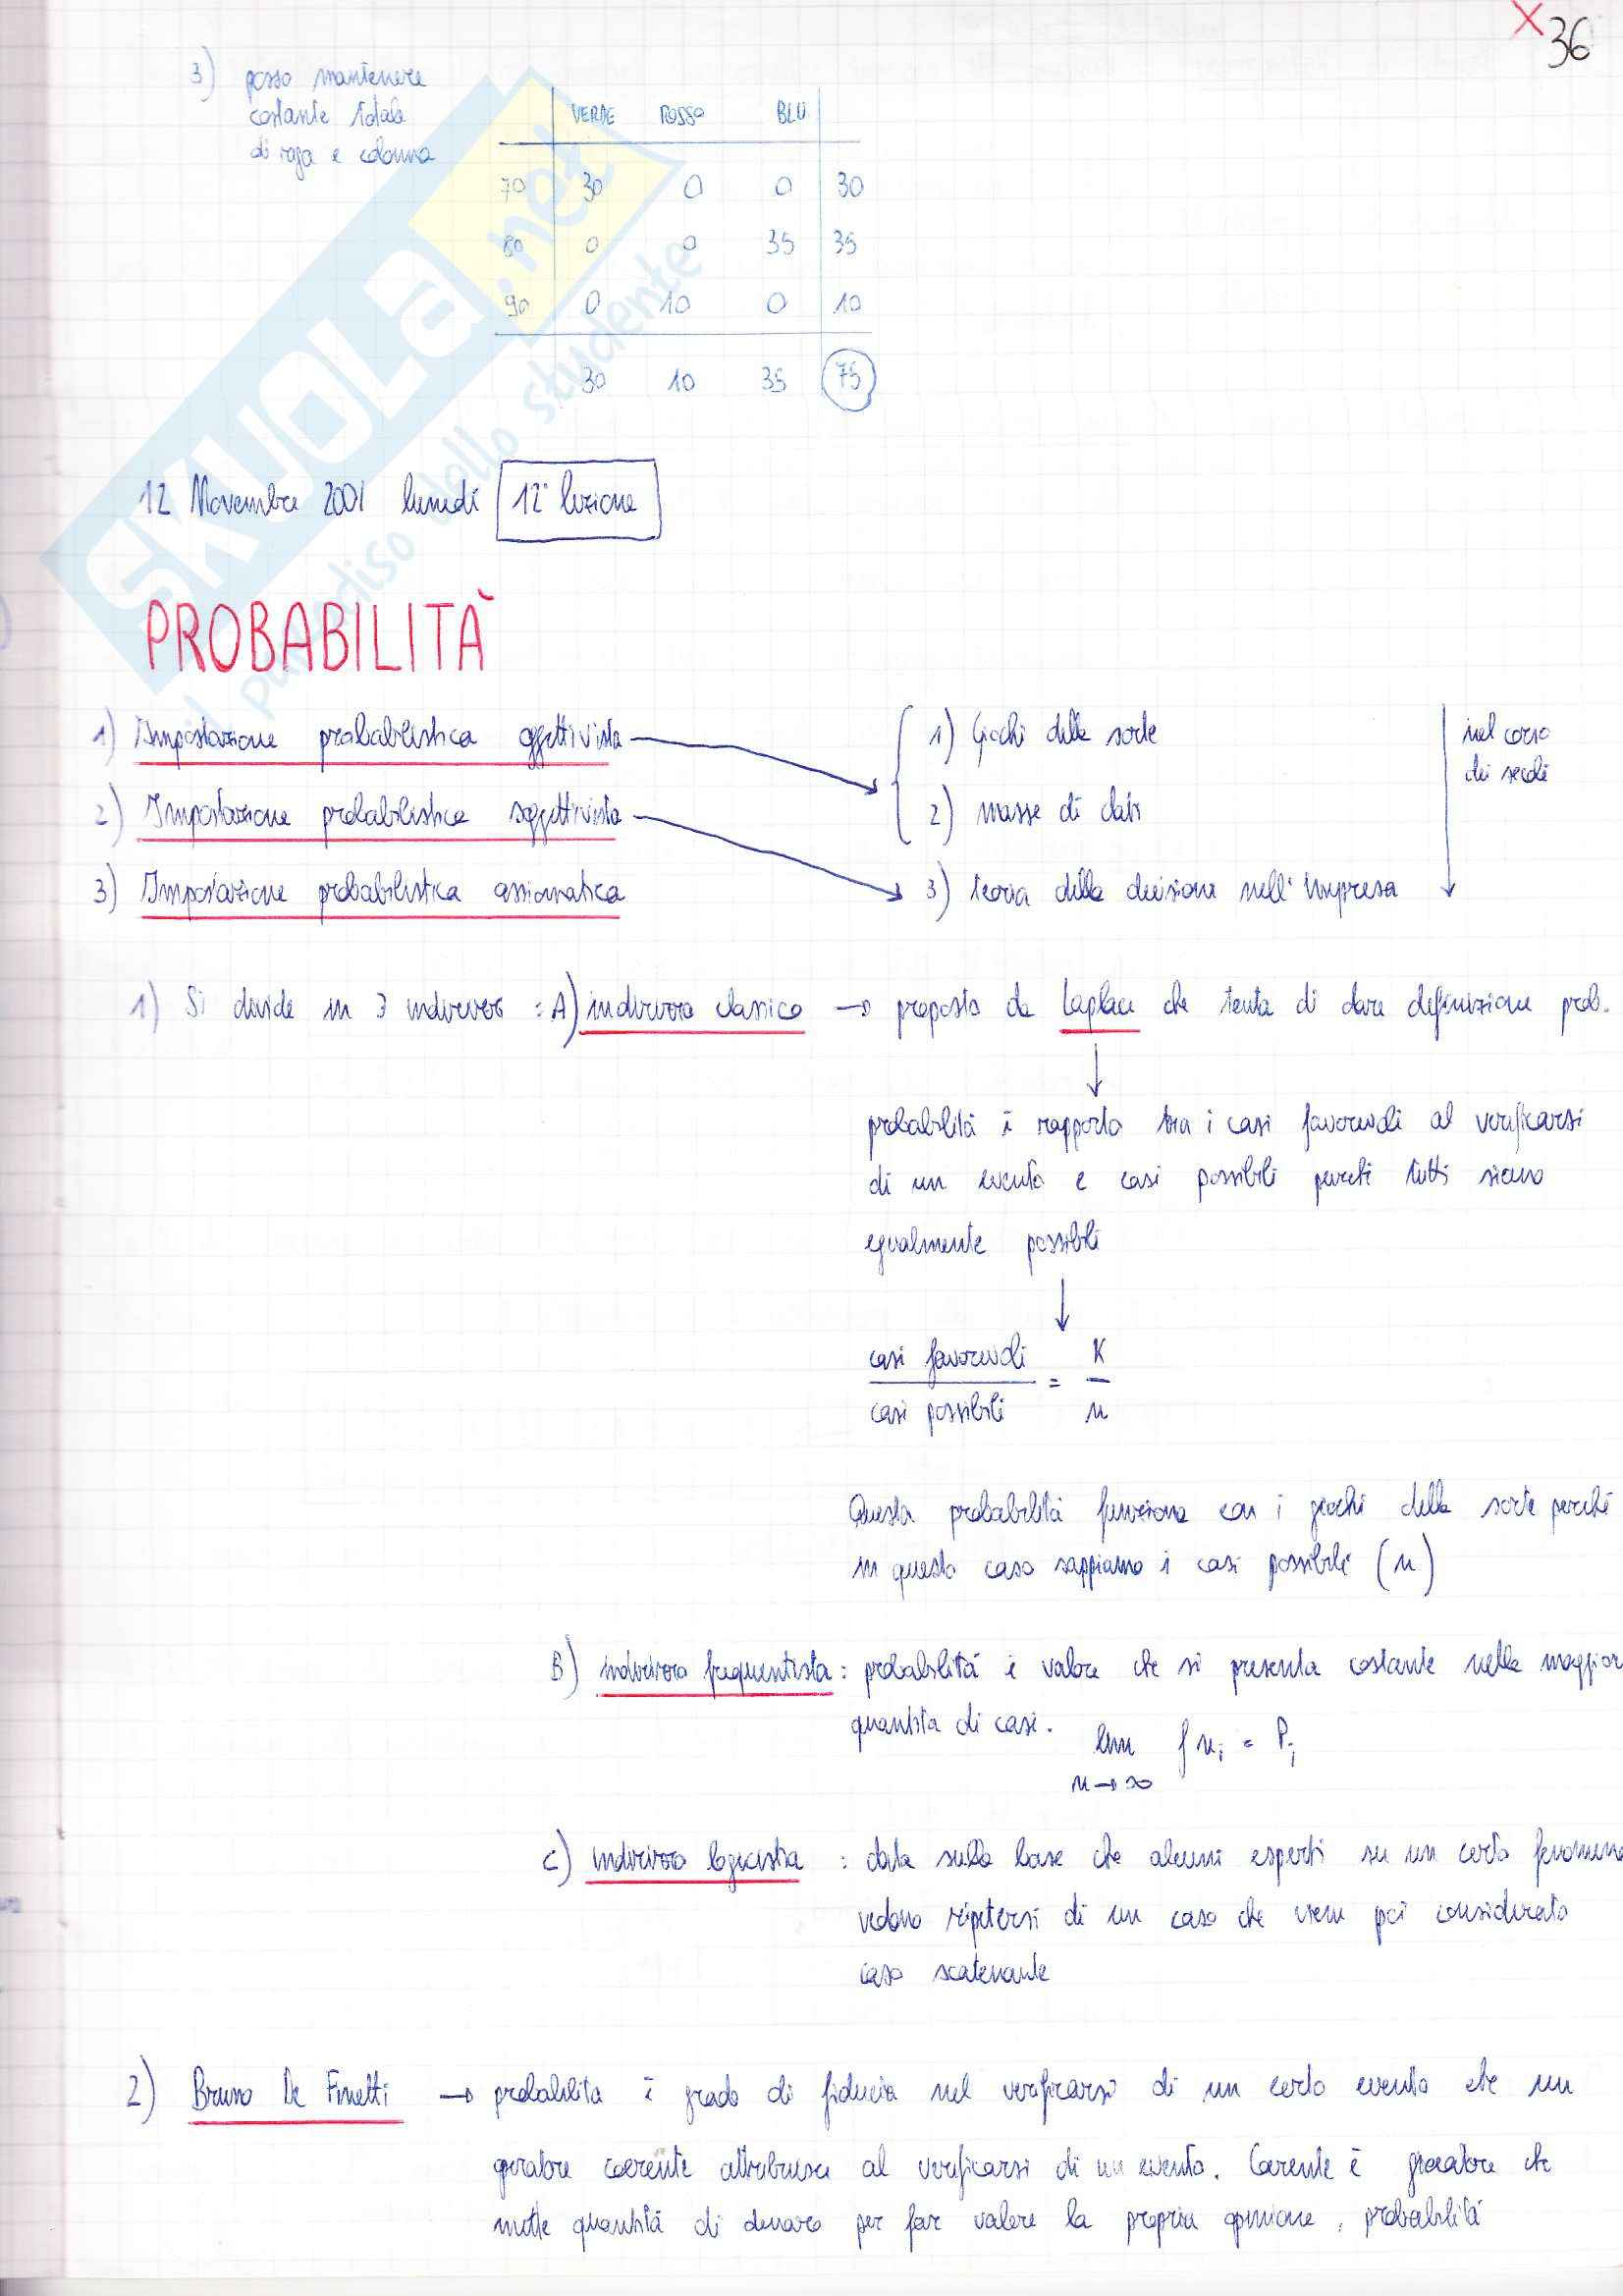 X 36
3) posso mantenere
costante totale
di riga e colonna
VERDE ROSSO BLU
70 30 0 0 30
80 0 0 35 35
90 0 10 0 10
30 10 35 75
SKUOLA.net
il paradiso dello studente
12 Novembre 2001 lunedì 12ª lezione
PROBABILITÀ
1) Impostazione probabilistica oggettivista
2) Impostazione probabilistica soggettivista
3) Impostazione probabilistica assiomatica
1) Giochi della sorte
2) masse di dati
3) teoria della decisione nell'impresa
nel corso
dei secoli
1) Si divide in 3 indirizzi : A) indirizzo classico → proposto da Laplace che tenta di dare definizione prob.
↓
probabilità è rapporto tra i casi favorevoli al verificarsi
di un evento e casi possibili purché tutti siano
egualmente possibili
↓
casi favorevoli / casi possibili = K / n
Questa probabilità funziona con i giochi della sorte perché
in questo caso sappiamo i casi possibili (n)
B) indirizzo frequentista : probabilità è valore che si presenta costante nella maggior
quantità di casi. lim n→∞ f ni = Pi
C) indirizzo logicista : data sulla base che alcuni esperti su un certo fenomeno
vedono ripetersi di un caso che viene poi considerato
caso scatenante
2) Bruno De Finetti → probabilità è grado di fiducia nel verificarsi di un certo evento che un
coerente attribuisce al verificarsi di un evento. Coerente è giocatore che
mette quantità di denaro per far valere la propria opinione, probabilità